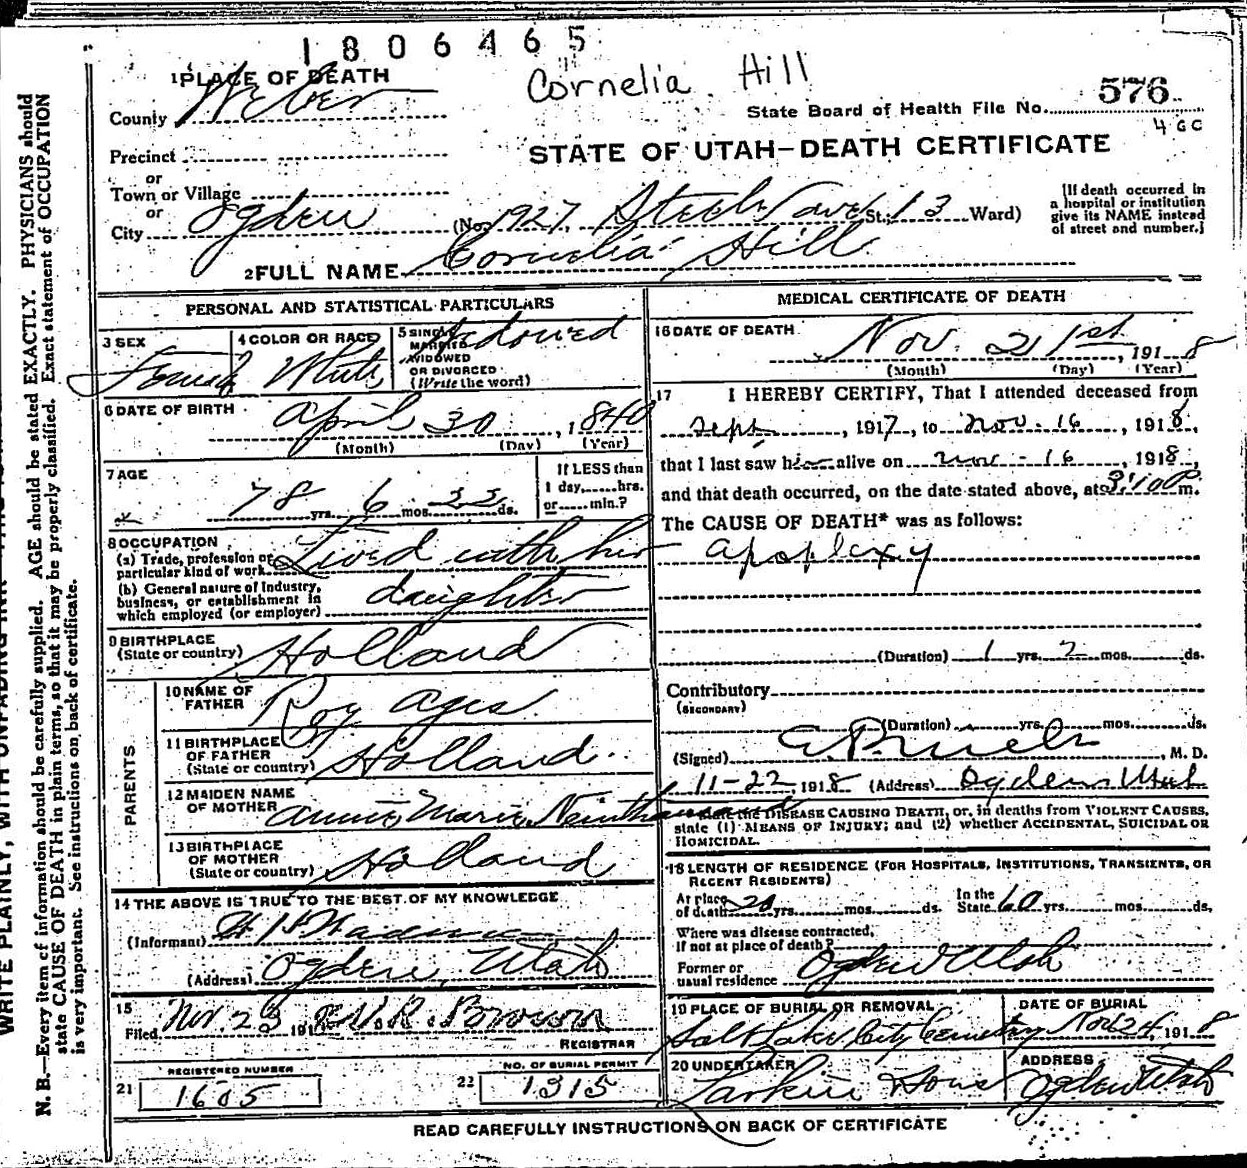 1806465
Cornelia Hill
1 PLACE OF DEATH
County Weber
State Board of Health File No. 576
4 GC
Precinct
or
STATE OF UTAH—DEATH CERTIFICATE
Town or Village
or
City Ogden (No. 1927 Steele ave St.; 13 Ward)
[If death occurred in
a hospital or institution
give its NAME instead
of street and number.]
2 FULL NAME Cornelia Hill
PERSONAL AND STATISTICAL PARTICULARS
3 SEX
Female
4 COLOR OR RACE
White
5 SINGLE
MARRIED
WIDOWED
OR DIVORCED
(Write the word)
Widowed
6 DATE OF BIRTH
April 30, 1840
(Month) (Day) (Year)
7 AGE
78 yrs. 6 mos. 22 ds.
If LESS than
1 day,......hrs.
or......min.?
8 OCCUPATION
(a) Trade, profession or
particular kind of work
Lived with her
(b) General nature of Industry,
business, or establishment in
which employed (or employer)
daughter
9 BIRTHPLACE
(State or country)
Holland
PARENTS
10 NAME OF
FATHER
Roy
11 BIRTHPLACE
OF FATHER
(State or country)
Holland
12 MAIDEN NAME
OF MOTHER
Annie Marie
13 BIRTHPLACE
OF MOTHER
(State or country)
Holland
14 THE ABOVE IS TRUE TO THE BEST OF MY KNOWLEDGE
(Informant)
(Address) Ogden, Utah
15
Filed Nov. 23 191 Brown
REGISTRAR
REGISTERED NUMBER
21 1605
NO. OF BURIAL PERMIT
22 1315
MEDICAL CERTIFICATE OF DEATH
16 DATE OF DEATH
Nov. 21st, 1918
(Month) (Day) (Year)
17 I HEREBY CERTIFY, That I attended deceased from
Sept, 1917, to Nov. 16, 1918,
that I last saw h alive on Nov - 16, 1918,
and that death occurred, on the date stated above, at 3:10 P m.
The CAUSE OF DEATH* was as follows:
apoplexy
(Duration) 1 yrs. 2 mos. ds.
Contributory
(SECONDARY)
(Duration) yrs. mos. ds.
(Signed) M. D.
11-22, 1918 (Address) Ogden Utah
State the DISEASE CAUSING DEATH, or, in deaths from VIOLENT CAUSES,
state (1) MEANS OF INJURY; and (2) whether ACCIDENTAL, SUICIDAL OR
HOMICIDAL.
18 LENGTH OF RESIDENCE (FOR HOSPITALS, INSTITUTIONS, TRANSIENTS, OR
RECENT RESIDENTS)
At place
of death 20 yrs. mos. ds.
In the
State 60 yrs. mos. ds.
Where was disease contracted,
If not at place of death?
Former or
usual residence Ogden Utah
19 PLACE OF BURIAL OR REMOVAL
Salt Lake City Cemetery
DATE OF BURIAL
Nov 24, 1918
20 UNDERTAKER
Larkin & Sons
ADDRESS
Ogden Utah
READ CAREFULLY INSTRUCTIONS ON BACK OF CERTIFICATE
N. B.—Every item of information should be carefully supplied. AGE should be stated EXACTLY. PHYSICIANS should
state CAUSE OF DEATH in plain terms, so that it may be properly classified. Exact statement of OCCUPATION
is very important. See instructions on back of certificate.
WRITE PLAINLY, WITH UNFADING INK